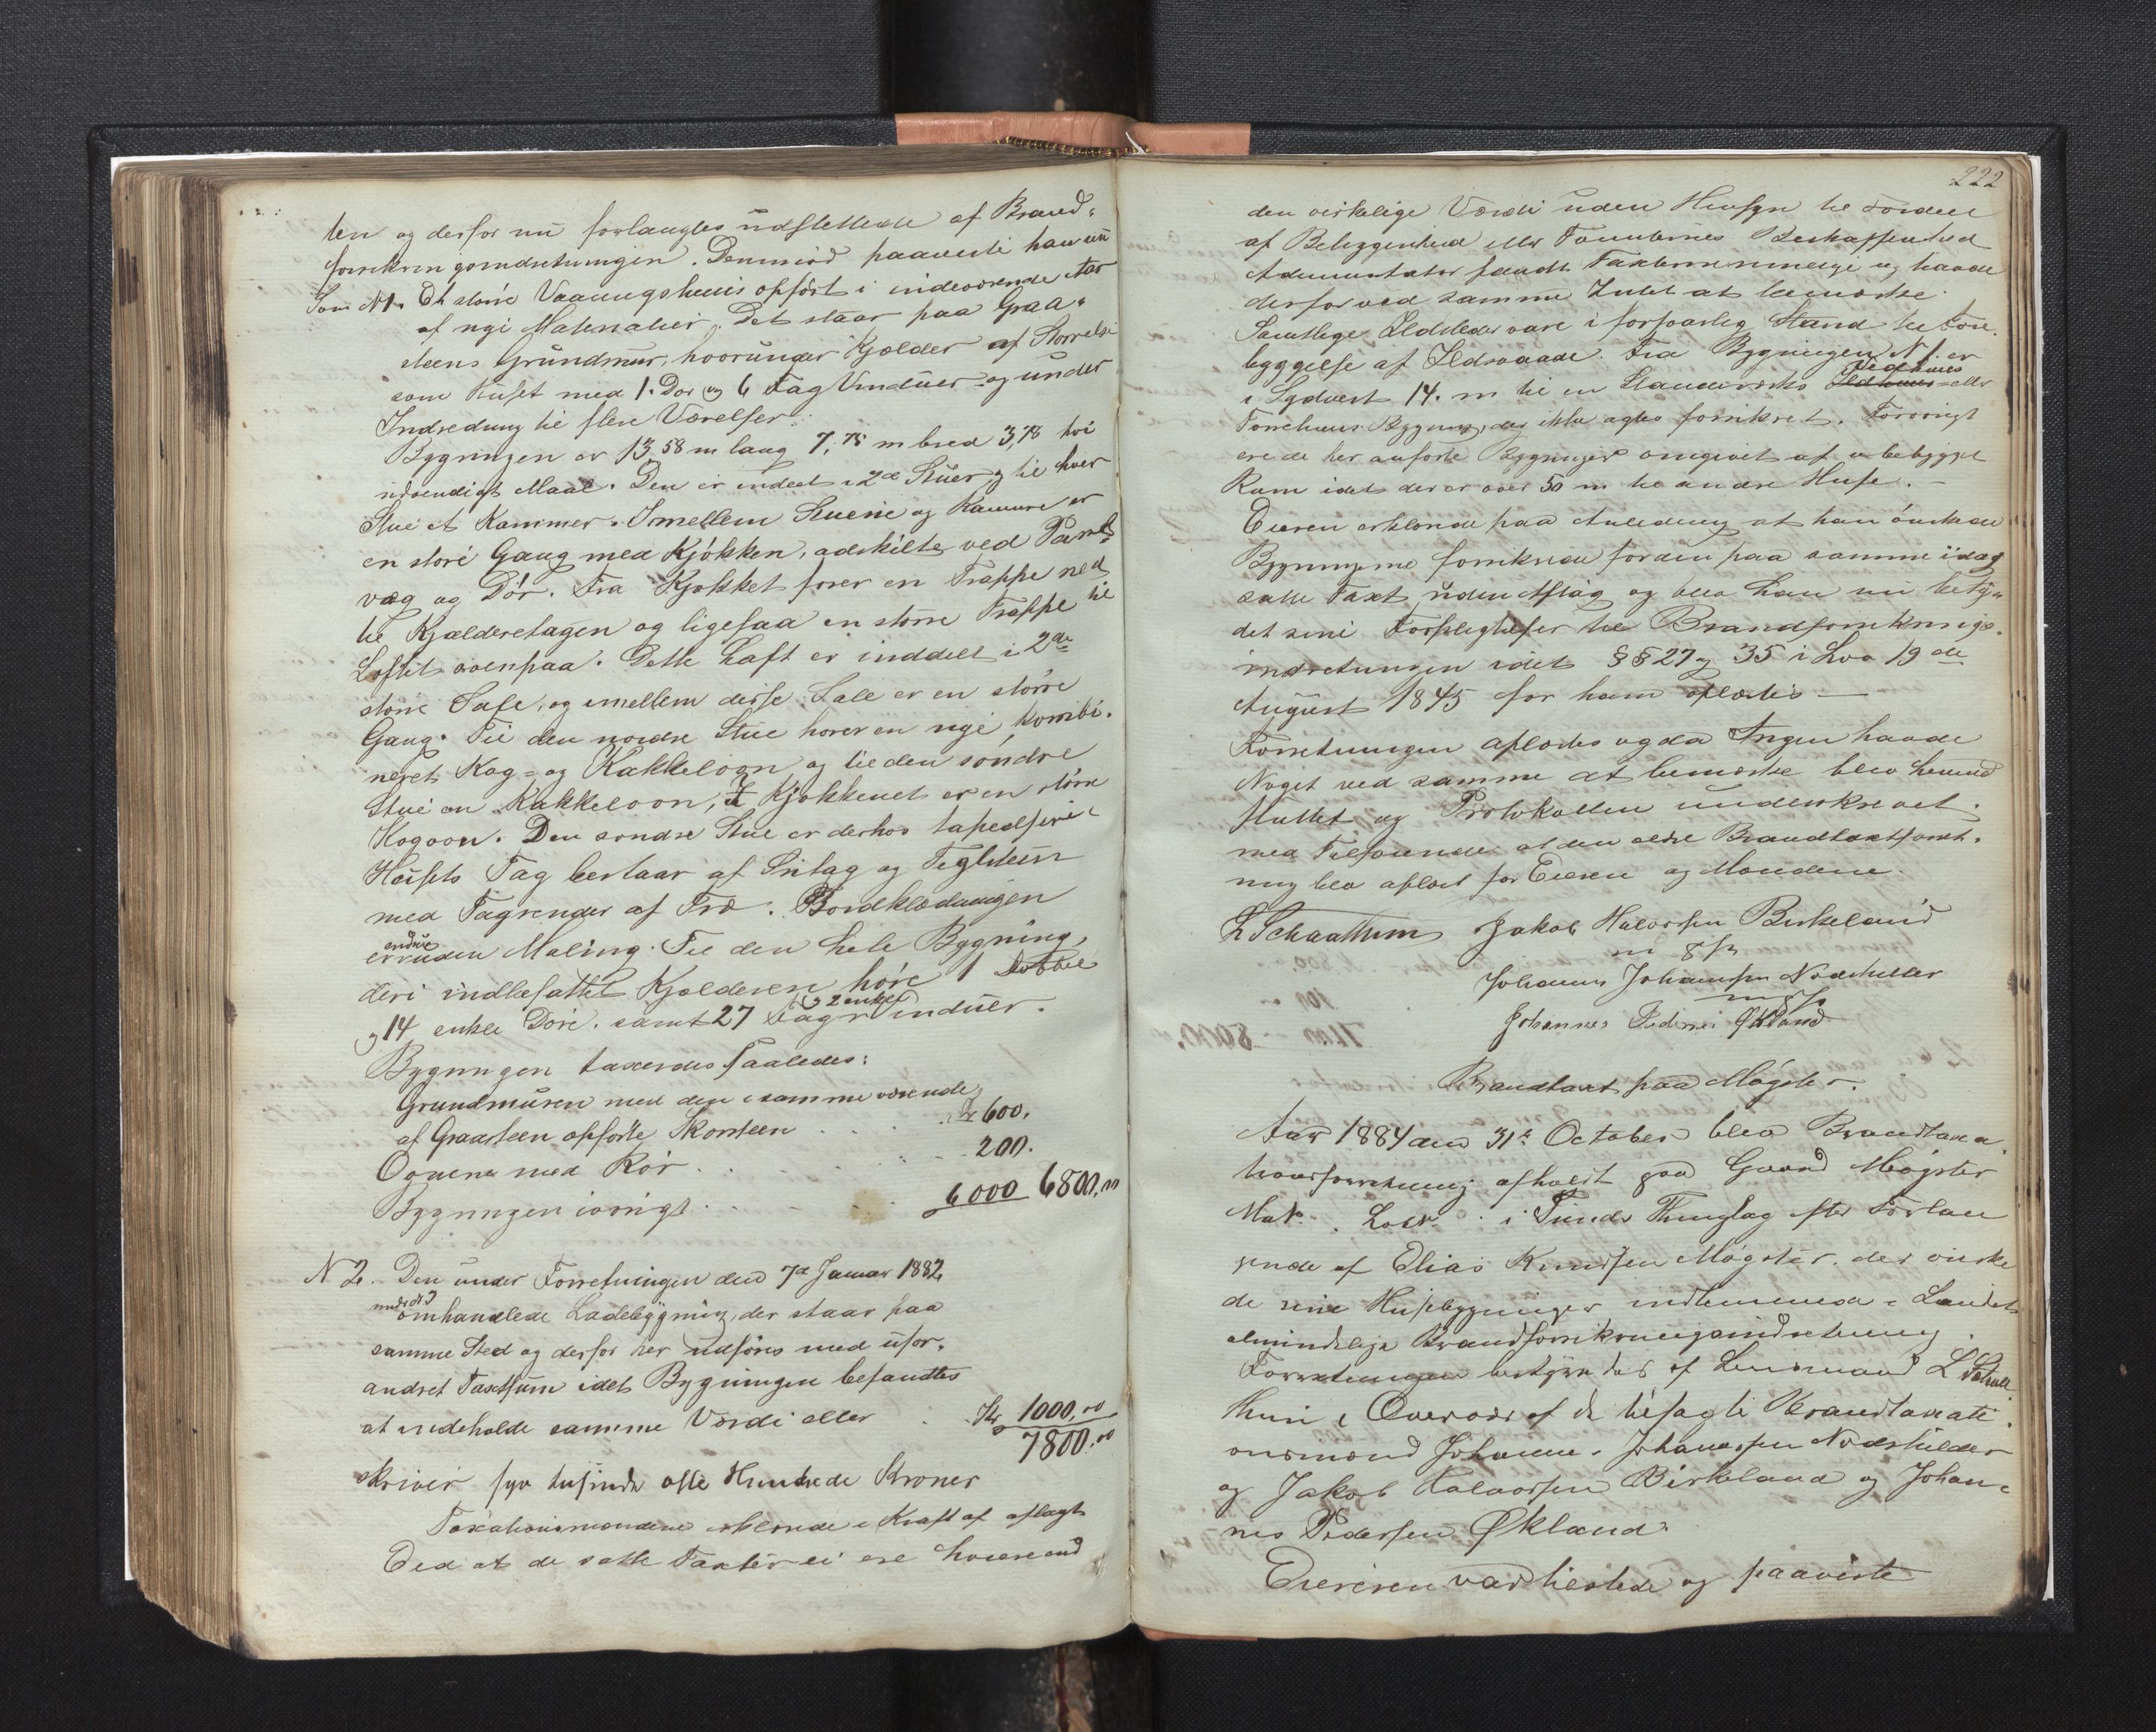 ten og derfor nu forlangtes udslettede af Brand-
forsikringsindretningen. Denimod paaviste han nu
Som N 1. Et større Vaaningshuus opført i indeværende Aar
af nye Materialier. Det staar paa Graa-
steens Grundmur, hvorunder Kjælder af Størrelse
som Huset med 1. Dør og 6 Fag Vinduer og under
Indredning til flere Værelser.
Bygningen er 13,58 m lang 7,75 m bred 3,78 høi
udvendigt Maal. Den er inddeelt i 2de Stuer og til hver
Stue et Kammer. Imellem Stuerne og Kamrene er
en større Gang med Kjøkken, adskilte ved Panel
væg og Dør. Fra Kjøkket fører en Trappe ned
til Kjælderetagen og ligesaa en større Trappe til
Loftet ovenpaa. Dette Loft er inddelt i 2de
større Sale, og imellem disse Sale er en større
Gang. Til den nordre Stue hører en nye, kombi-
neret Kog- og Kakkelovn og til den søndre
Stue en Kakkelovn, I Kjøkkenet er en større
Kogoven. Den søndre Stue er derhos tapedseret
Husets Tag bestaar af Sutag og Tegelsteen
med Tagrender af Træ. Bordklædningen
er endnu uden Maling. Til den hele Bygning,
deri indbefattet Kjælderen høre 1 dobbel
og 2 enkel
og 14 enkle Døre. samt 27 Fag Vinduer.
Bygningen taxerdes saaledes:
Grundmuren med den i samme værende
af Graasteen opførte Skorsteen . . . . Kr 600.
Ovnene med Rør . . . . . . 200.
Bygningen iøvrigt . . . . 6000 6800,00
N 2. Den under Forretningen den 7de Januar 1882
under N 3
omhandlede Ladebygning, der staar paa
samme Sted og derfor her udføres med ufor-
andret Taxtsum idet Bygningen befandtes
at indeholde samme Værdi eller . Kr 1000,00
7800,00
skriver syv tusinde otte Hundrede Kroner
Taxationsmændene erklærede i Kraft af aflagt
Eed at de satte Taxter ei ere høiere end
222
den virkelige Værdi uden Hensyn til Fordeel
af Beliggenhed eller Tomternes Beskaffenhed
Administrator fandt Taxterne rimelige og havde
derfor ved samme Intet at bemærke.
Samtlige Ildsteder vare i forsvarlig Stand til Fore-
byggelse af Ildsvaade. Fra Bygningen N 1. er
Vedhuus
i Sydvest 14. m til en Staveværks Ildhuus eller
Torvehuus Bygning, der ikke agtes forsikret. Forøvrigt
ere de her anførte Bygninger omgivet af ubebygget
Rum idet der er over 50 m til andre Huse. —
Eieren erklærede paa Anledning at han ønskede
Bygningerne forsikrede for den paa samme idag
satte Taxt, uden Afslag og blev han nu betÿ-
det sine Forpligtelser til Brandforsikrings-
indretningen idet §§ 27 og 35 i Lov 19de
August 1845 for ham oplæstes —
Forretningen aflæstes og da Ingen havde
Noget ved samme at bemærke blev hermed
sluttet og Protokollen underskrevet.
med Tilføiende at den ældre Brandtaxtforret-
ning blev aflæst for Eieren og Mændene.
L Schaathum Jakob Halvorsen Birkeland
m f P
Johannes Johannesen Nødskilder
m f P
Johannes Pedersen Økland
Brandtaxt paa Møgster.
Aar 1884 den 31te October blev Brandtaxa
tionsforretning afholdt paa Gaard Møgster
Mat . Løbn . i Sunds Thinglag efter Forlan
gende af Elias Knudsen Møgster. der ønske
de sine Husebygninger indlemmede i Landets
almindelige Brandforsikringsindretning.
Forretningen bestyredes af Lensmand L Schaa
thun i Overvær af de beskikkede Brandtaxati-
onsmænd Johannes Johannesen Nødskilder
og Jakob Halvorsen Birkeland og Johan-
nes Pedersen Økland.
Eieren var tilstede og paaviste